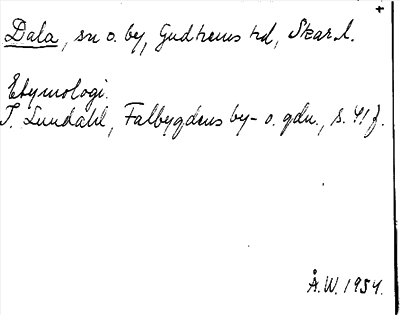 Dala, sn o. by, Gudhems hd, Skar.l.
Etymologi.
I. Lundahl, Falbygdens by- o. gdn., s. 41 f.
Å.W. 1954.